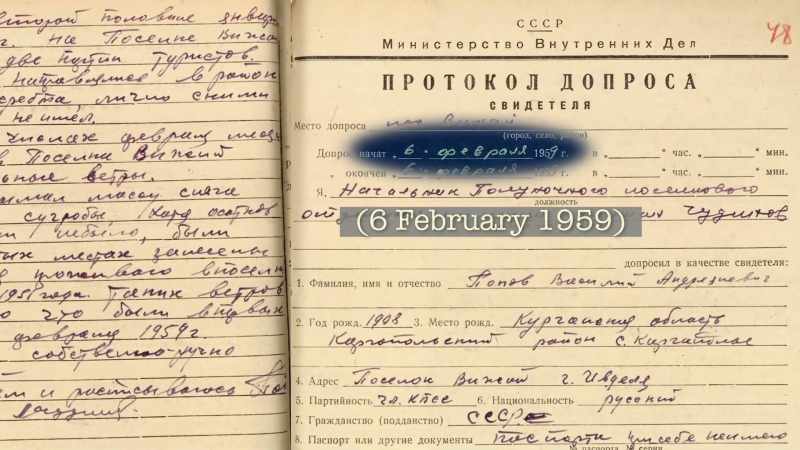 второй половине января
г. на Поселке Вижай
две партии туристов.
направлялись в район
хребта, лично с ними
не имел.
числах февраля месяца
в Поселке Вижай
ветры.
массу снега
сугробы.
были
местах занесены
1951 года. Таких ветров
что были в первых
февраля 1959 г.
собственно-ручно
и расписываюсь
СССР
48
Министерство Внутренних Дел
ПРОТОКОЛ ДОПРОСА
СВИДЕТЕЛЯ
Место допроса пос Вижай
(город, село, район)
Допрос начат „6 - февраля 1959 г. в „ " час. „ " мин.
окончен 6 февраля г. в „ " час. „ " мин.
Я, Начальник Полуночного поселкового
должность
Чудинов
(6 February 1959)
допросил в качестве свидетеля:
1. Фамилия, имя и отчество Попов Василий Андреевич
2. Год рожд. 1908 3. Место рожд. Курганская область
Каргапольский район с. Каргаполье
4. Адрес Поселок Вижай г. Ивделя
5. Партийность чл. КПСС 6. Национальность русский
7. Гражданство (подданство) СССР
8. Паспорт или другие документы паспорта при себе не имею
№ паспорта, № серии